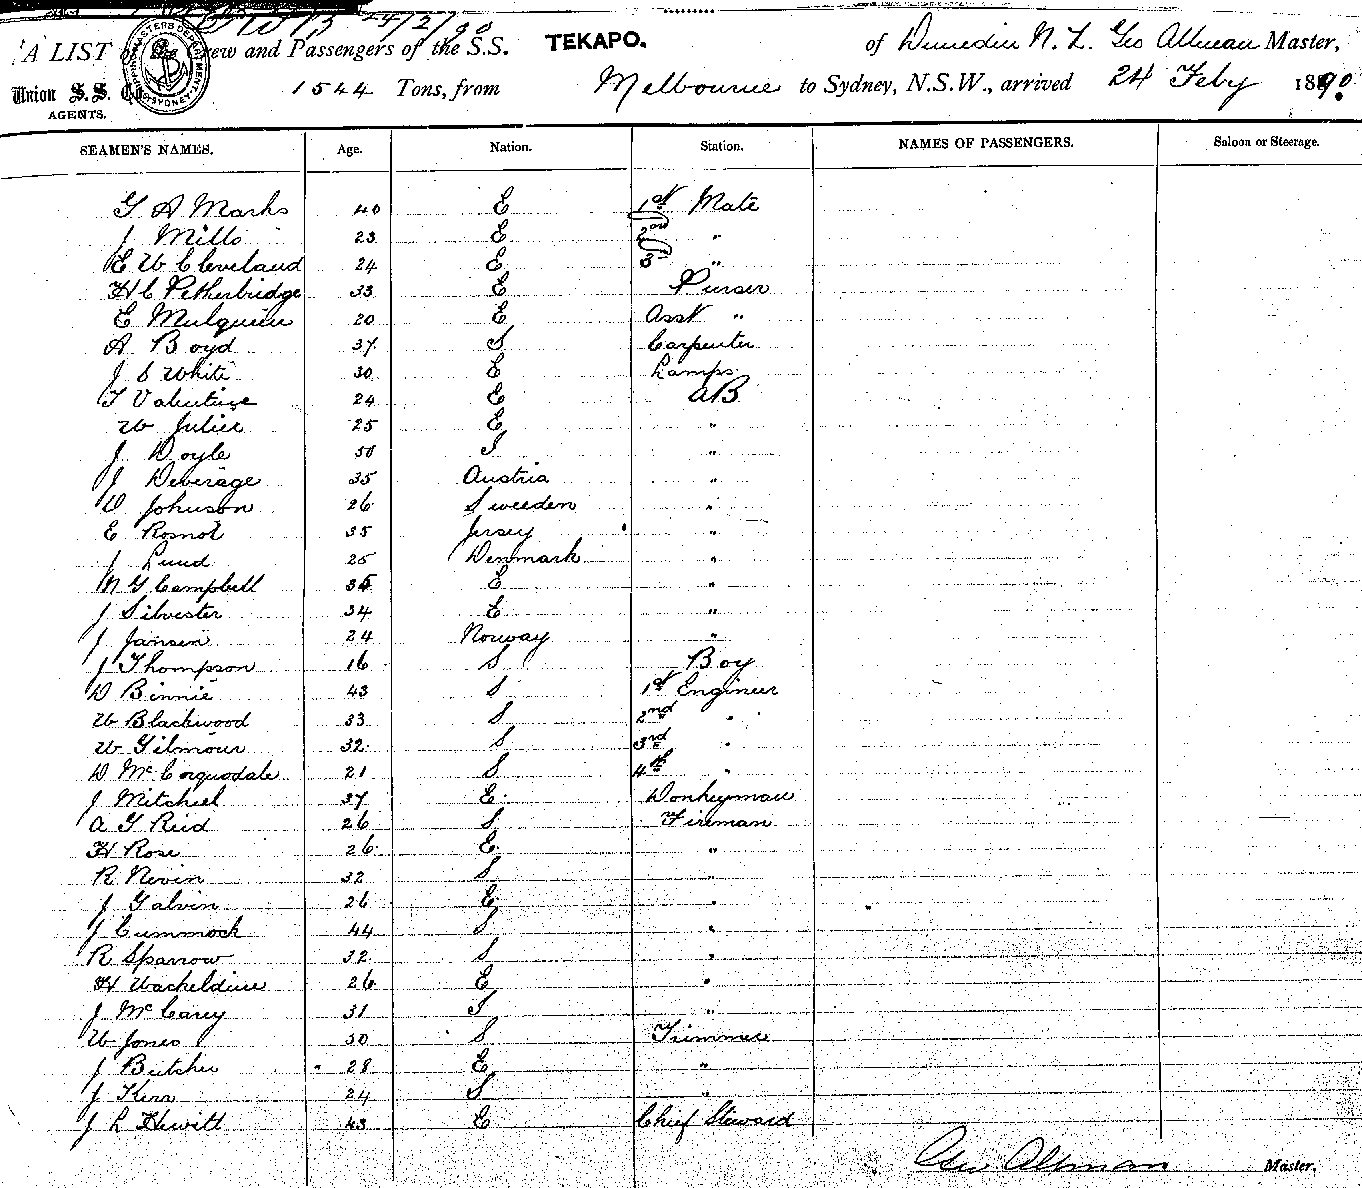 24/2/90
A LIST of the Crew and Passengers of the S.S. TEKAPO. of Dunedin N. Z. Geo Allman Master,
Union S. S. Co
AGENTS.
1544 Tons, from Melbourne to Sydney, N.S.W., arrived 24 Feby 1890.
SEAMEN'S NAMES. Age. Nation. Station. NAMES OF PASSENGERS. Saloon or Steerage.
G A Marks 40 E 1st Mate
J Mills 23 E 2nd "
E W Cleveland 24 E 3 "
H C Petherbridge 33 E Purser
E Mulquin 20 E Asst "
A Boyd 37 S Carpenter
J S White 30 E Lamps
T Valentine 24 E AB
W Julier 25 E "
J Doyle 50 I "
J Deverage 35 Austria "
D Johnson 26 Sweeden "
E Rosnot 35 Jersey "
J Lund 25 Denmark "
N G Campbell 35 E "
J Silvester 34 E "
J Jansen 24 Norway "
J Thompson 16 S Boy
D Binnie 43 S 1st Engineer
W Blackwood 33 S 2nd "
W Gilmour 32 S 3rd "
D McCorquodale 21 S 4th "
J Mitchiel 37 E Donkeyman
A G Reid 26 S Fireman
H Rose 26 E "
R Nevin 32 S "
J Galvin 26 E "
J Cummock 44 S "
R Sparrow 32 S "
H Wacheldine 26 E "
J McCarey 31 I "
W Jones 30 S Trimmer
J Butcher 28 E "
J Kerr 24 S "
J L Hewitt 43 E Chief Steward
Geo Allman Master.